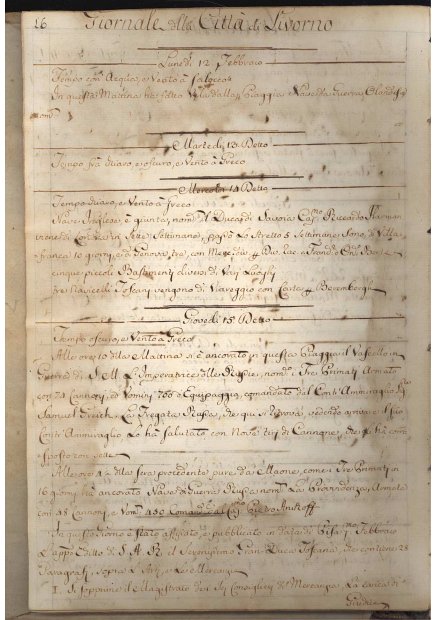 16 Giornale della Città di Livorno
Lunedì 12 Febbraio
Tempo con Acqua, e Vento a Scilocco
In questa Mattina ha fatto Vela dalla Piaggia Nave da Guerra Olandese
nom.
Martedì 13 Detto
Tempo frà Chiaro, e oscuro, e Vento à Greco
Mercoledì 14 Detto
Tempo Chiaro, e Vento à Greco
Nave Inglese è giunta, nom. Il Duca di Savoia Cap. Riccardo
viene di in Sette Settimane, passò Lo Stretto 5 Settimane Sono, di Villa
franca 10 giorni, e di Genova tre, con
cinque piccoli Bastimenti diversi di Varj Luoghi
tre Navicelli Toscani vengono di Viareggio con
Giovedì 15 Detto
Tempo oscuro, e Vento à Greco
Alle ore della Mattina si è ancorato in questa Piaggia il Vascello in
Guerra di S. M. L'Imperatrice delle Russie, nom. i Tre Primati Armato
con 74 Cannoni, e Uomini 700 d'Equipaggio, comandato dal Contr'Ammiraglio
Samuel Greich, La Fregata Russa, che quì si trova, vedendo arrivare il suo
Contr'Ammiraglio Lo hà Salutato con Nove tiri di Cannone, che gli hà corri
sposto con Sette
Alle ore 4 della sera precedente pure da Maone, come i Tre Primati in
16 giorni, si è ancorata Nave da Guerra Russa nom. La Providenza, Armata
con 38 Cannoni, e Uom. 450 Comand. dal Cap.
In questo giorno è stato affissato, e pubblicato in data di Pisa Febbraio
L'appo Editto di S. A. R. il Serenissimo Gran-Duca Toscana, che contiene 28
Paragrafi, sopra L'Arti, e Le Mercanzie
I. Si sopprime il Magistrato dei Sei Consiglieri di Mercanzia, La carica di
Giudice